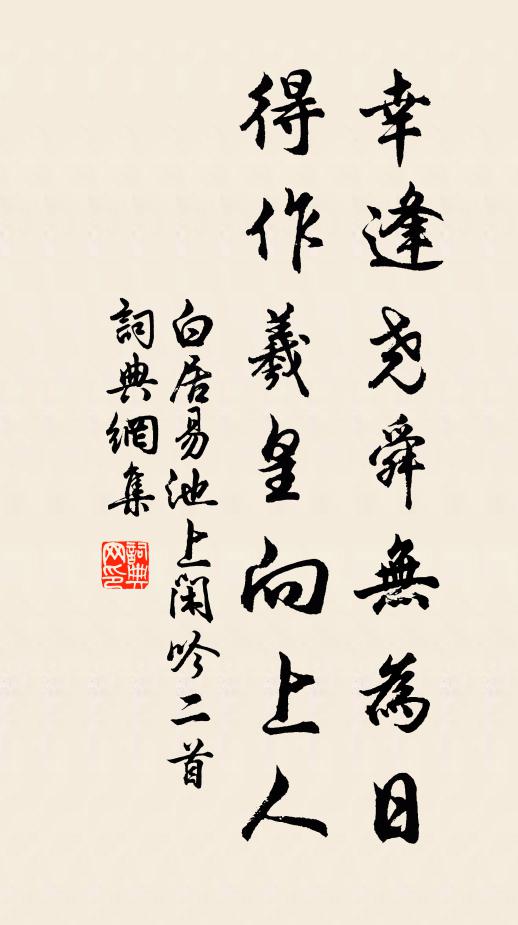 幸逢尧舜無為日
得作羲皇向上人
白居易池上閑吟二首
詞典網集
詞典网印